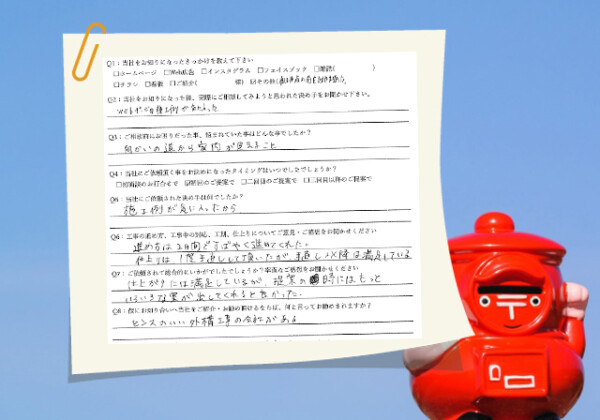 Q1：当社をお知りになったきっかけを教えて下さい
□ホームページ □Web広告 □インスタグラム □フェイスブック □雑誌( )
□チラシ □看板 □ご紹介( 様)
Q2：当社をお知りになった後、実際にご相談してみようと思われた決め手をお聞かせ下さい。
Q3：ご相談前にお困りだった事、悩まれていた事はどんな事でしたか？
向かいの道から室内が見えること
Q4：当社にご依頼頂く事をお決めになったタイミングはいつでしたでしょうか？
□初回のご提案で □二回目のご提案で □三回目以降のご提案で
Q5：当社にご依頼された決め手は何でしたか？
施工例が気に入ったから
Q6：工事の進め方、工事中の対応、工期、仕上りについてご意見・ご感想をお聞かせください
進め方は2日間ですばやく進めてくれた。
仕上りは1度手直しして頂いたが、手直し以降は満足している
Q7：ご依頼されて総合的にいかがでしたでしょうか？率直なご感想をお聞かせください
仕上がりには満足しているが、提案の時にはもっと
いろいろな案が出してくれると良かった。
Q8：仮にお知り合いへ当社をご紹介・お勧め頂けるならば、何と言ってお勧めされますか？
センスのいい外構工事の会社がある
〒